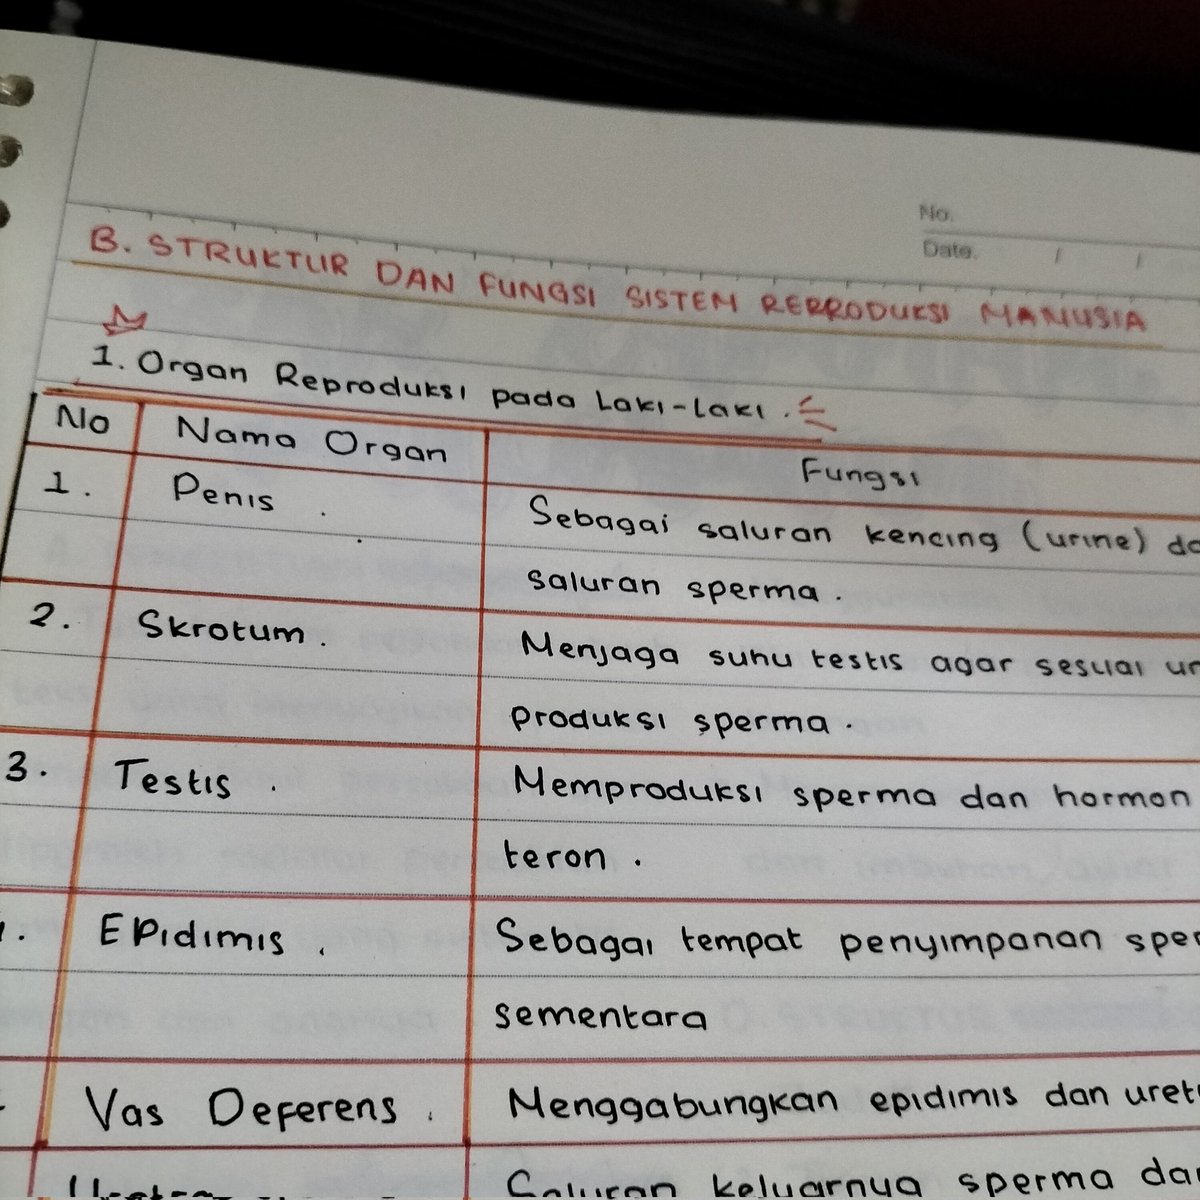 No.
Date. / /
B. STRUKTUR DAN FUNGSI SISTEM REPRODUKSI MANUSIA
1. Organ Reproduksi pada Laki-laki.
No Nama Organ Fungsi
1. Penis . Sebagai saluran kencing (urine)
saluran sperma.
2. Skrotum. Menjaga suhu testis agar sesuai
produksi sperma.
3. Testis . Memproduksi sperma dan hormon
teron .
Epidimis . Sebagai tempat penyimpanan
sementara
Vas Deferens . Menggabungkan epidimis dan
Saluran keluarnya sperma